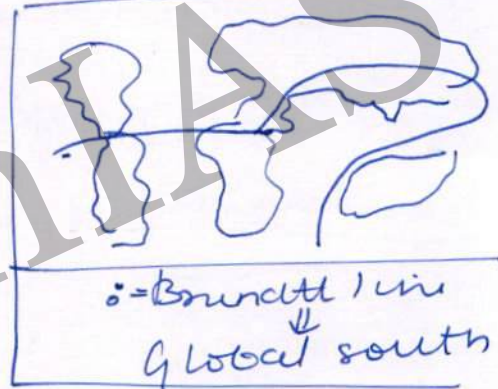 nIAS
:= Brundtl line
⇓
Global south